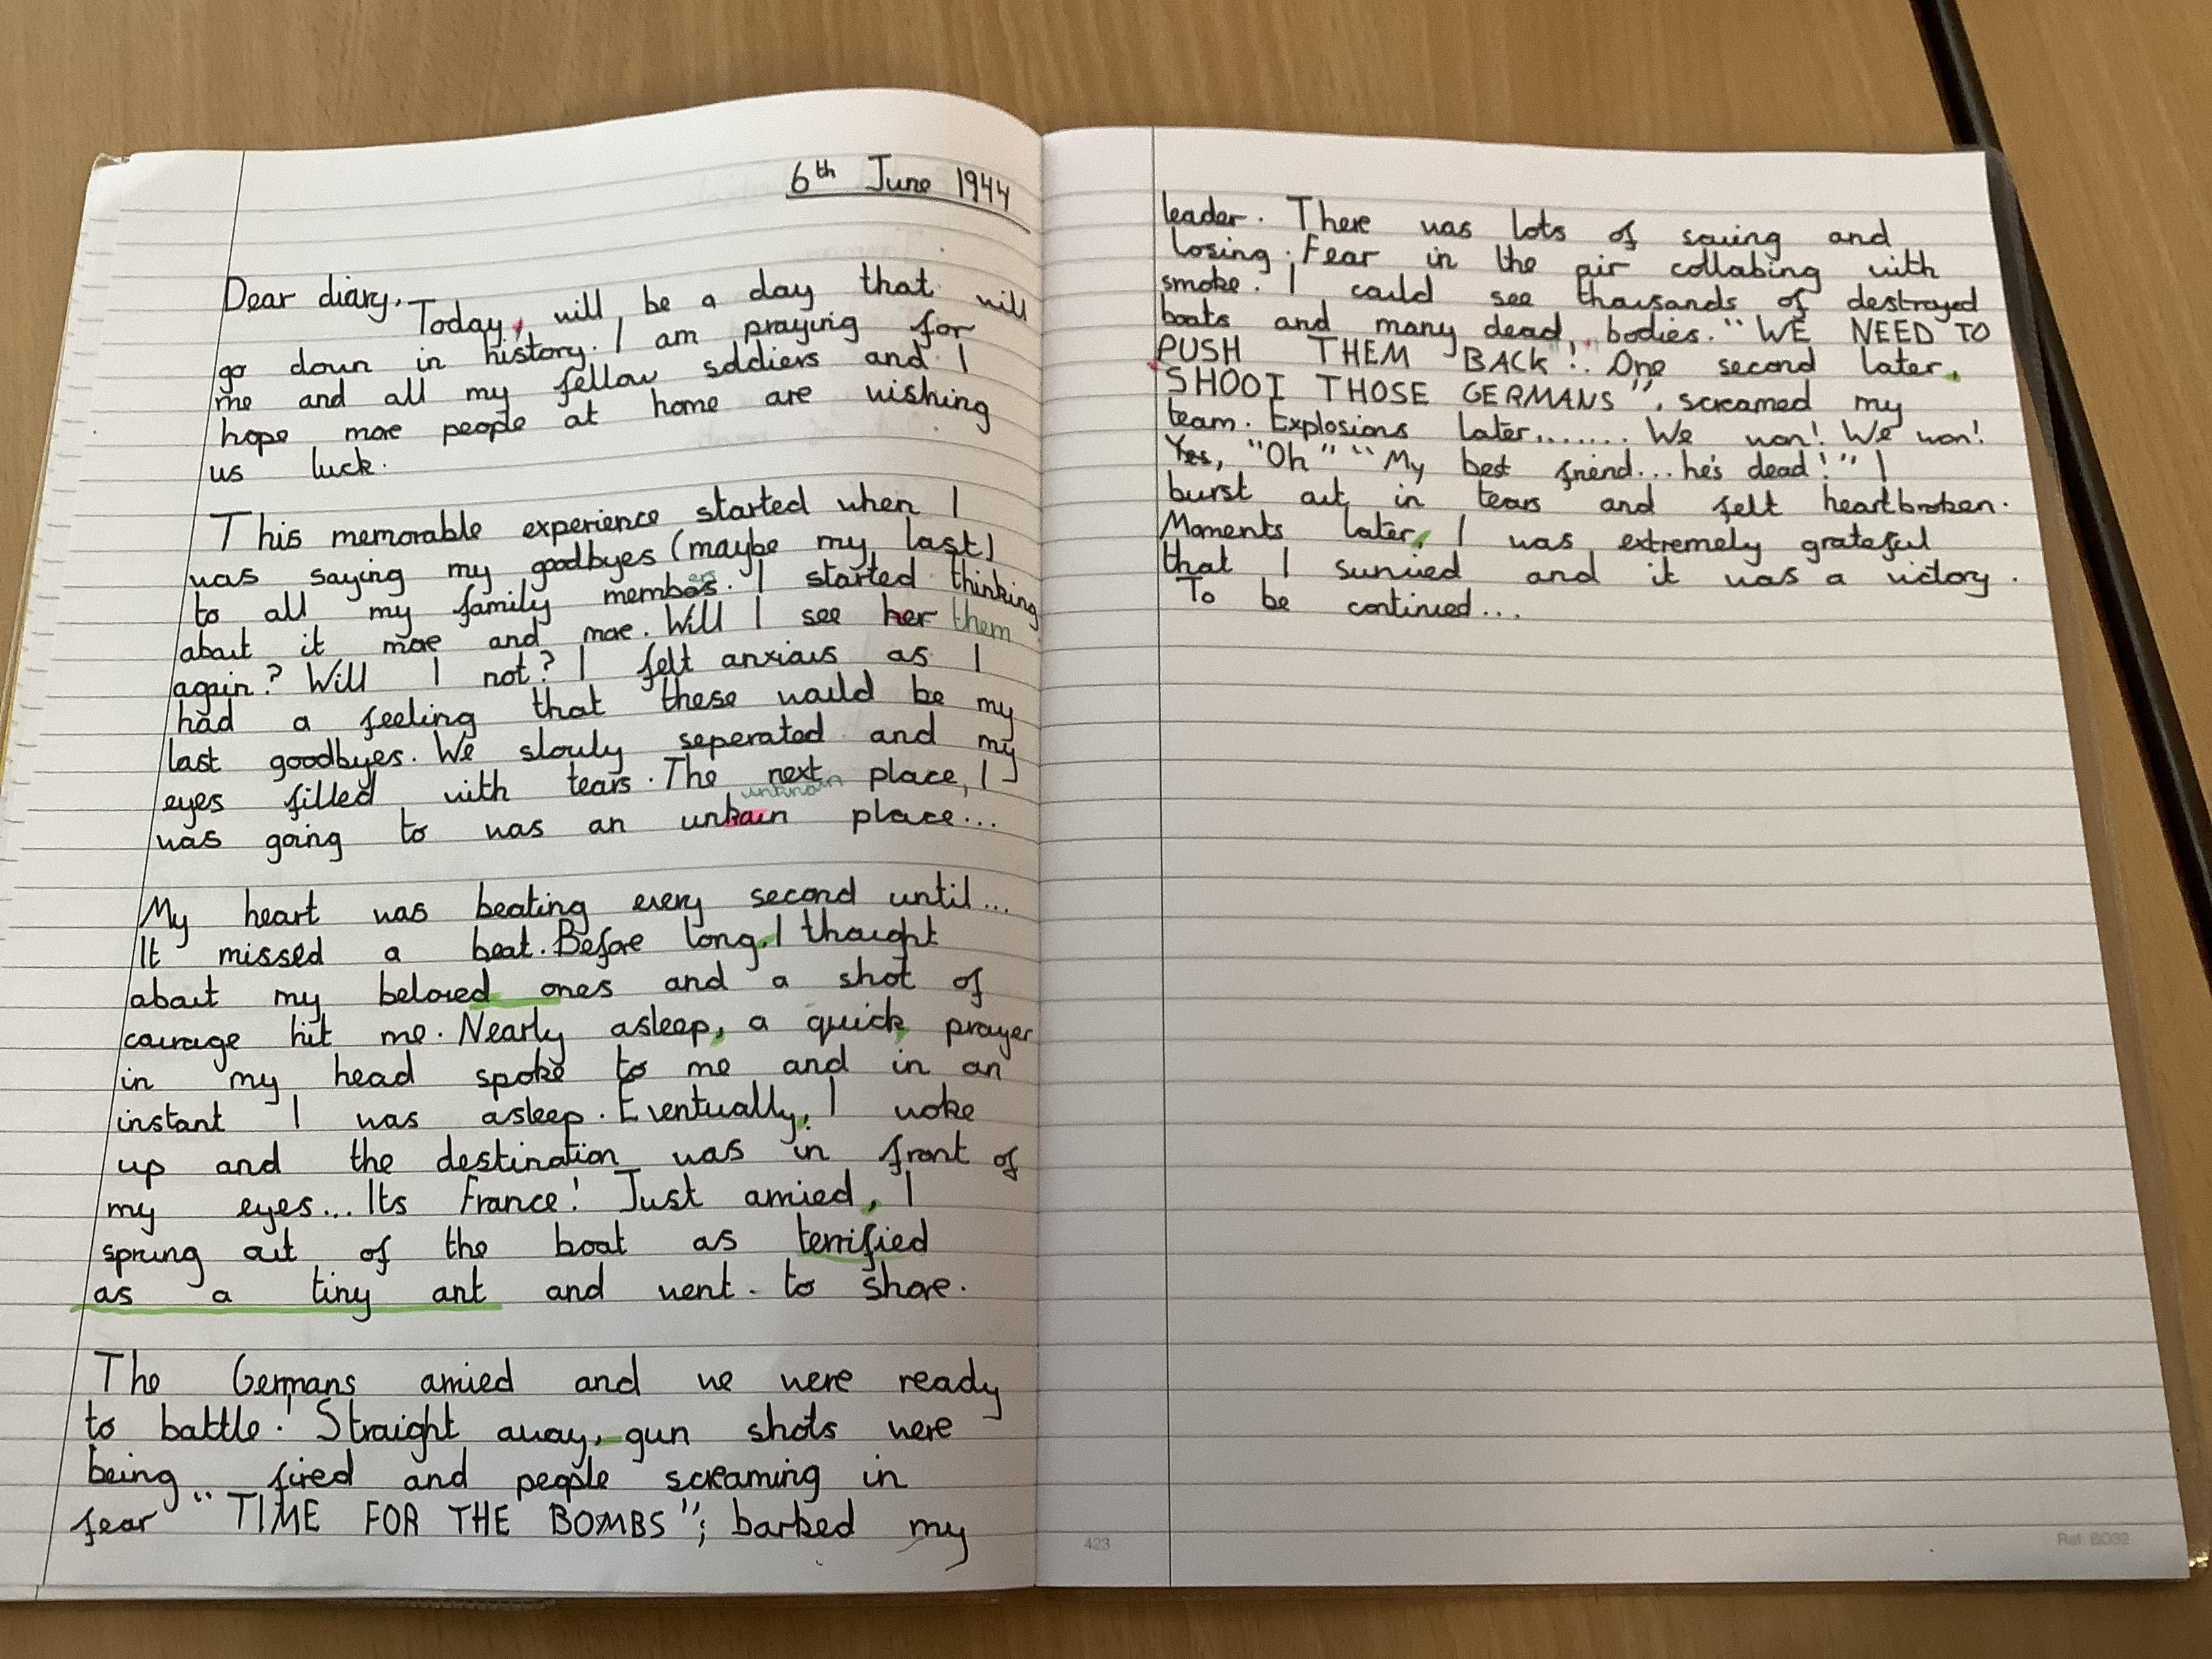 6th June 1944
Dear diary,
Today, will be a day that will
go down in history. I am praying for
me and all my fellow soldiers and I
hope more people at home are wishing
us luck.
This memorable experience started when I
was saying my goodbyes (maybe my last)
to all my family members. I started thinking
about it more and more. Will I see her them
again? Will I not? I felt anxious as I
had a feeling that these would be my
last goodbyes. We slowly seperated and my
eyes filled with tears. The next place, I
unknown
was going to was an unkown place...
My heart was beating every second until...
It missed a beat. Before long, I thought
about my beloved ones and a shot of
courage hit me. Nearly asleep, a quick prayer
in my head spoke to me and in an
instant I was asleep. Eventually, I woke
up and the destination was in front of
my eyes... Its France! Just arrived, I
sprung out of the boat as terrified
as a tiny ant and went to shore.
The Germans arrived and we were ready
to battle. Straight away, gun shots were
being fired and people screaming in
fear "TIME FOR THE BOMBS"; barked my
leader. There was lots of saving and
losing. Fear in the air collabing with
smoke. I could see thousands of destroyed
boats and many dead, bodies. "WE NEED TO
PUSH THEM BACK!. One second later,
SHOOT THOSE GERMANS", screamed my
team. Explosions later....... We won! We won!
Yes, "Oh" "My best friend... he's dead!" I
burst out in tears and felt heartbroken.
Moments later, I was extremely grateful
that I survived and it was a victory.
To be continued...
423
Ref BO32